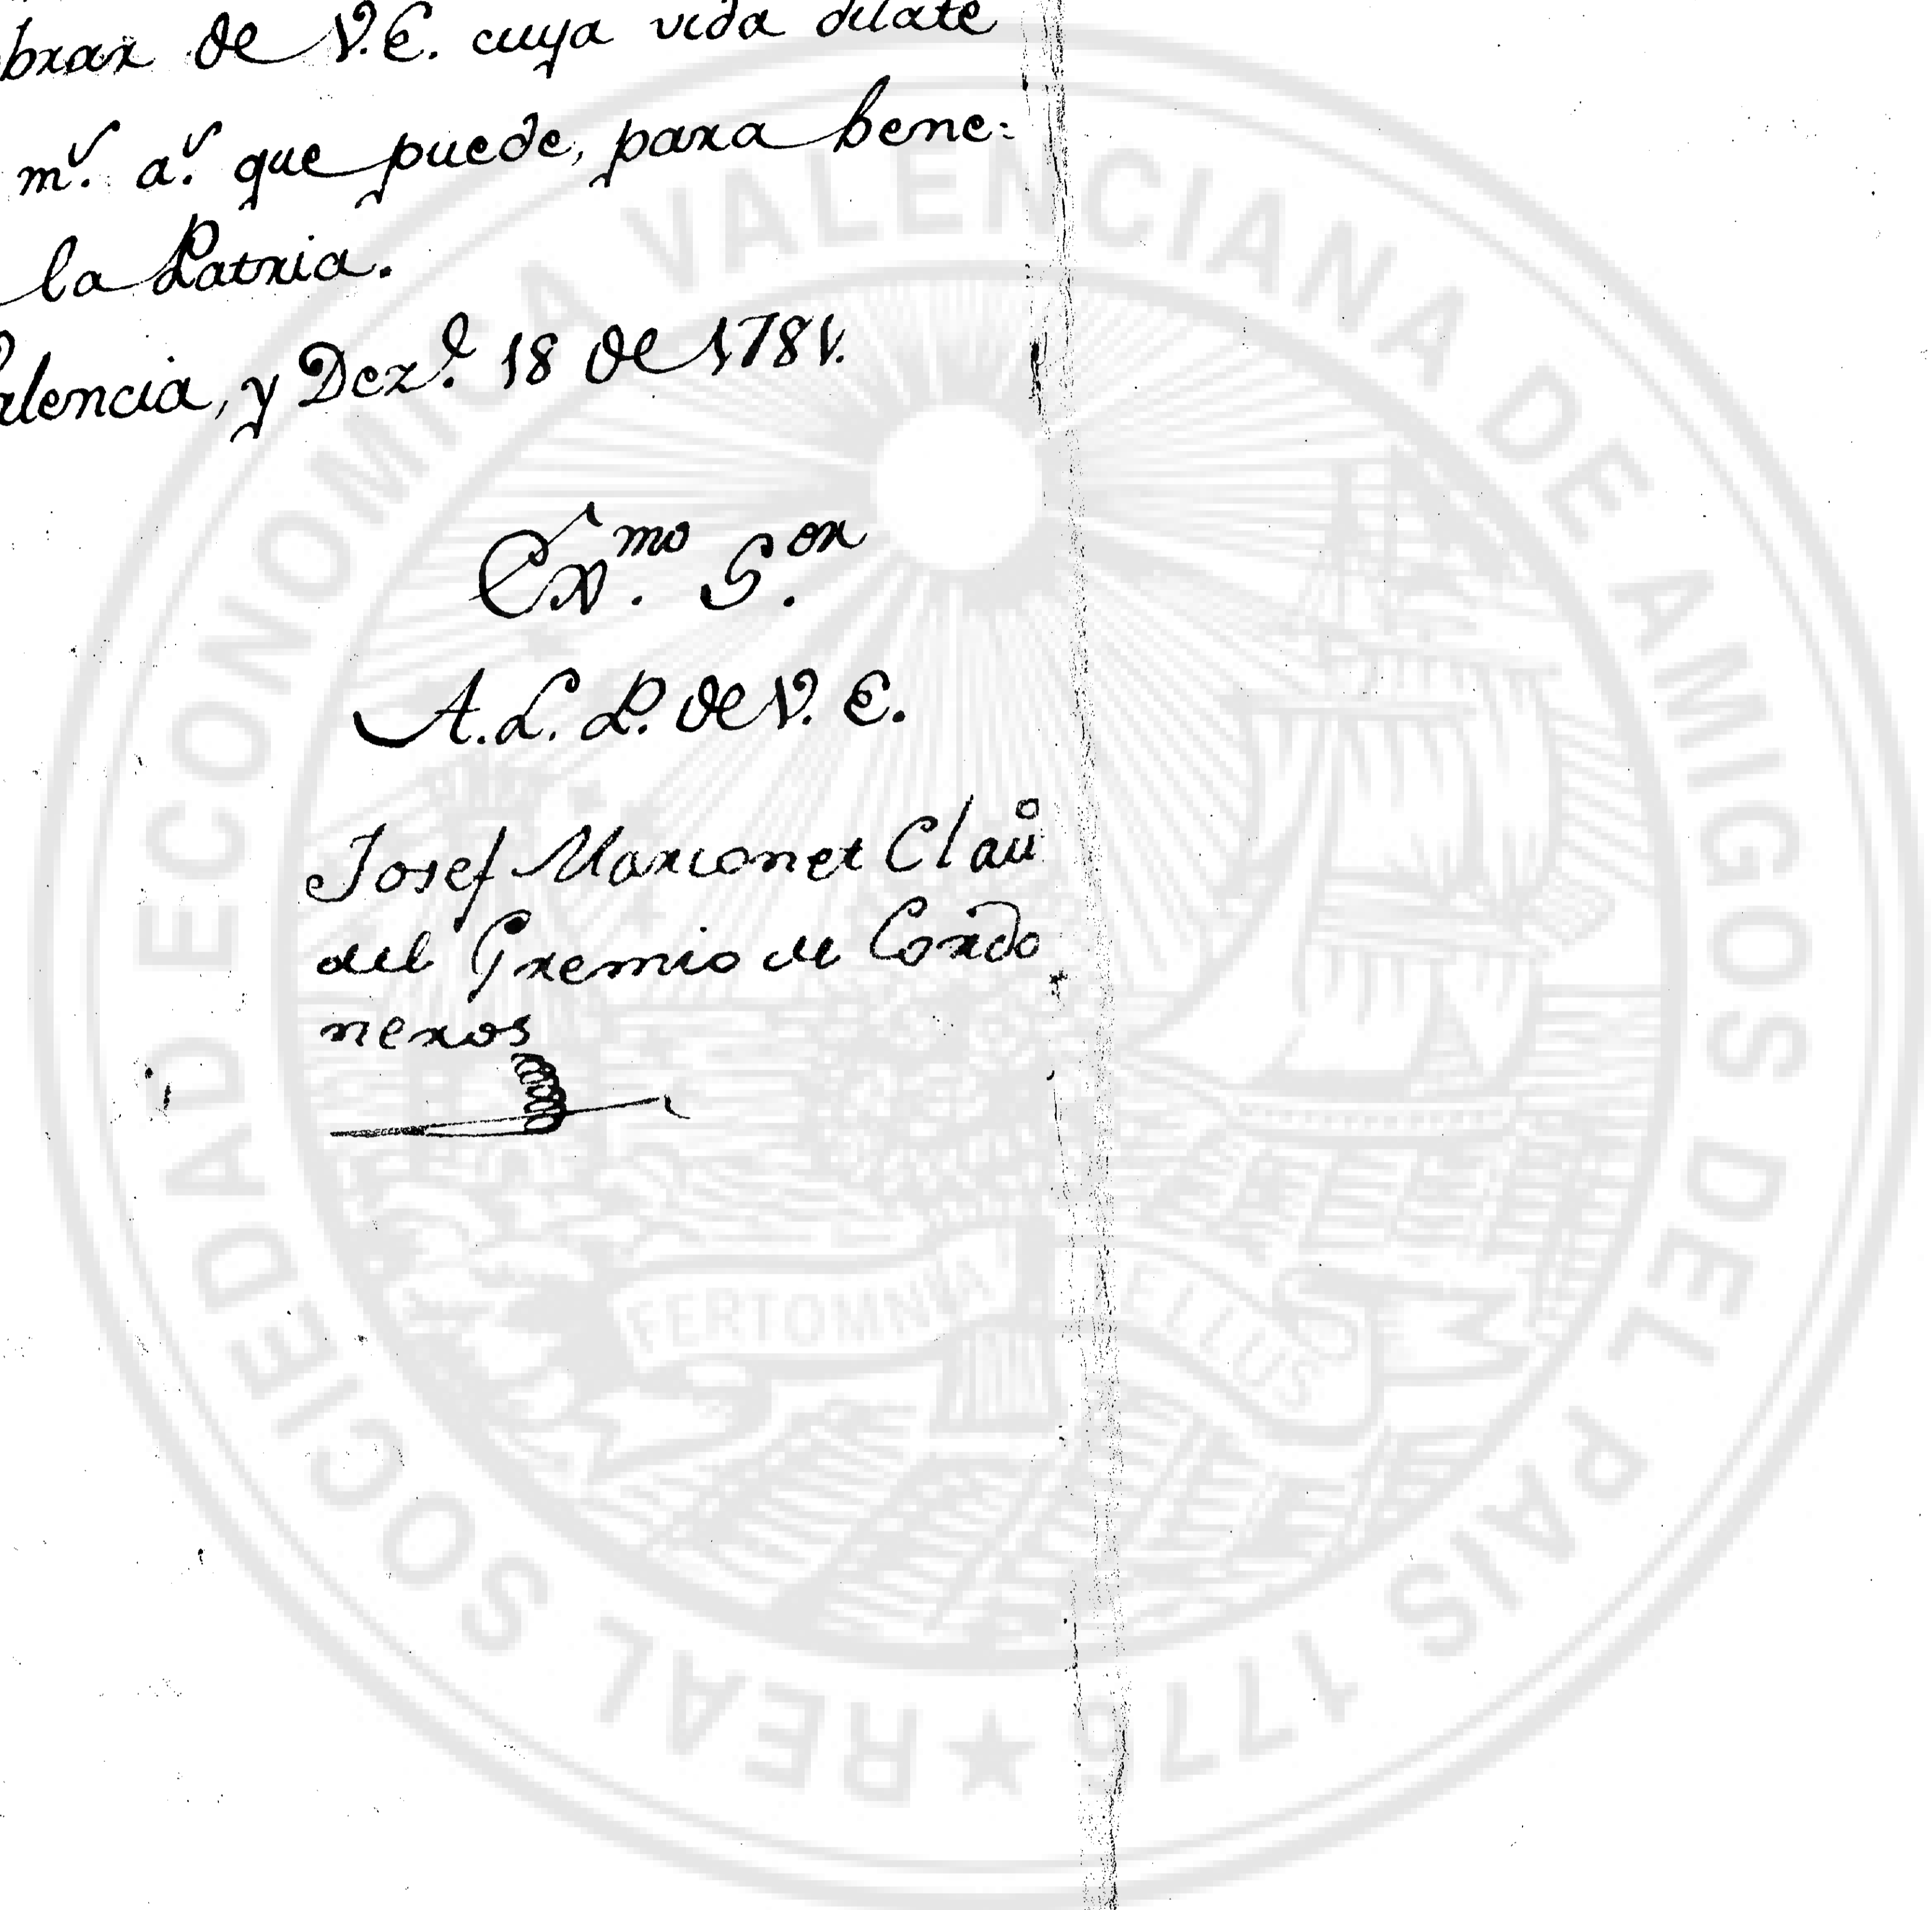 brar de V.E. cuya vida dilate
m.s a.s que puede, para bene=
la Patria.
alencia, y Dez.e 18 de 1781.
Ex.mo S.or
A.L.P. de V.E.
Josef Marconer Clau.o
del Gremio de Cordo
neros
REAL SOCIEDAD ECONOMICA VALENCIANA DE AMIGOS DEL PAIS 1776
FERT OMNIA TELLUS